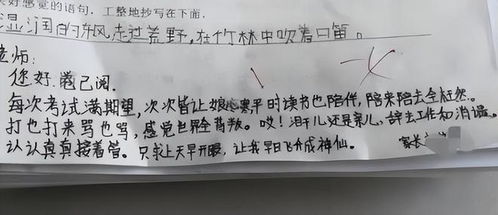 好感觉的语句,工整地抄写在下面。
湿润的东风,走过荒野,在竹林中吹着口笛。
老师:
您好,卷已阅。
每次考试满期望,次次皆让娘心寒。平时读书也陪伴,陪来陪去全枉然。
打也打来骂也骂,感觉世界全背叛。哎!泪干儿还是亲儿,辞去工作和消遣。
认认真真接着管。只求上天早开眼,让我早日飞升成神仙。
家长